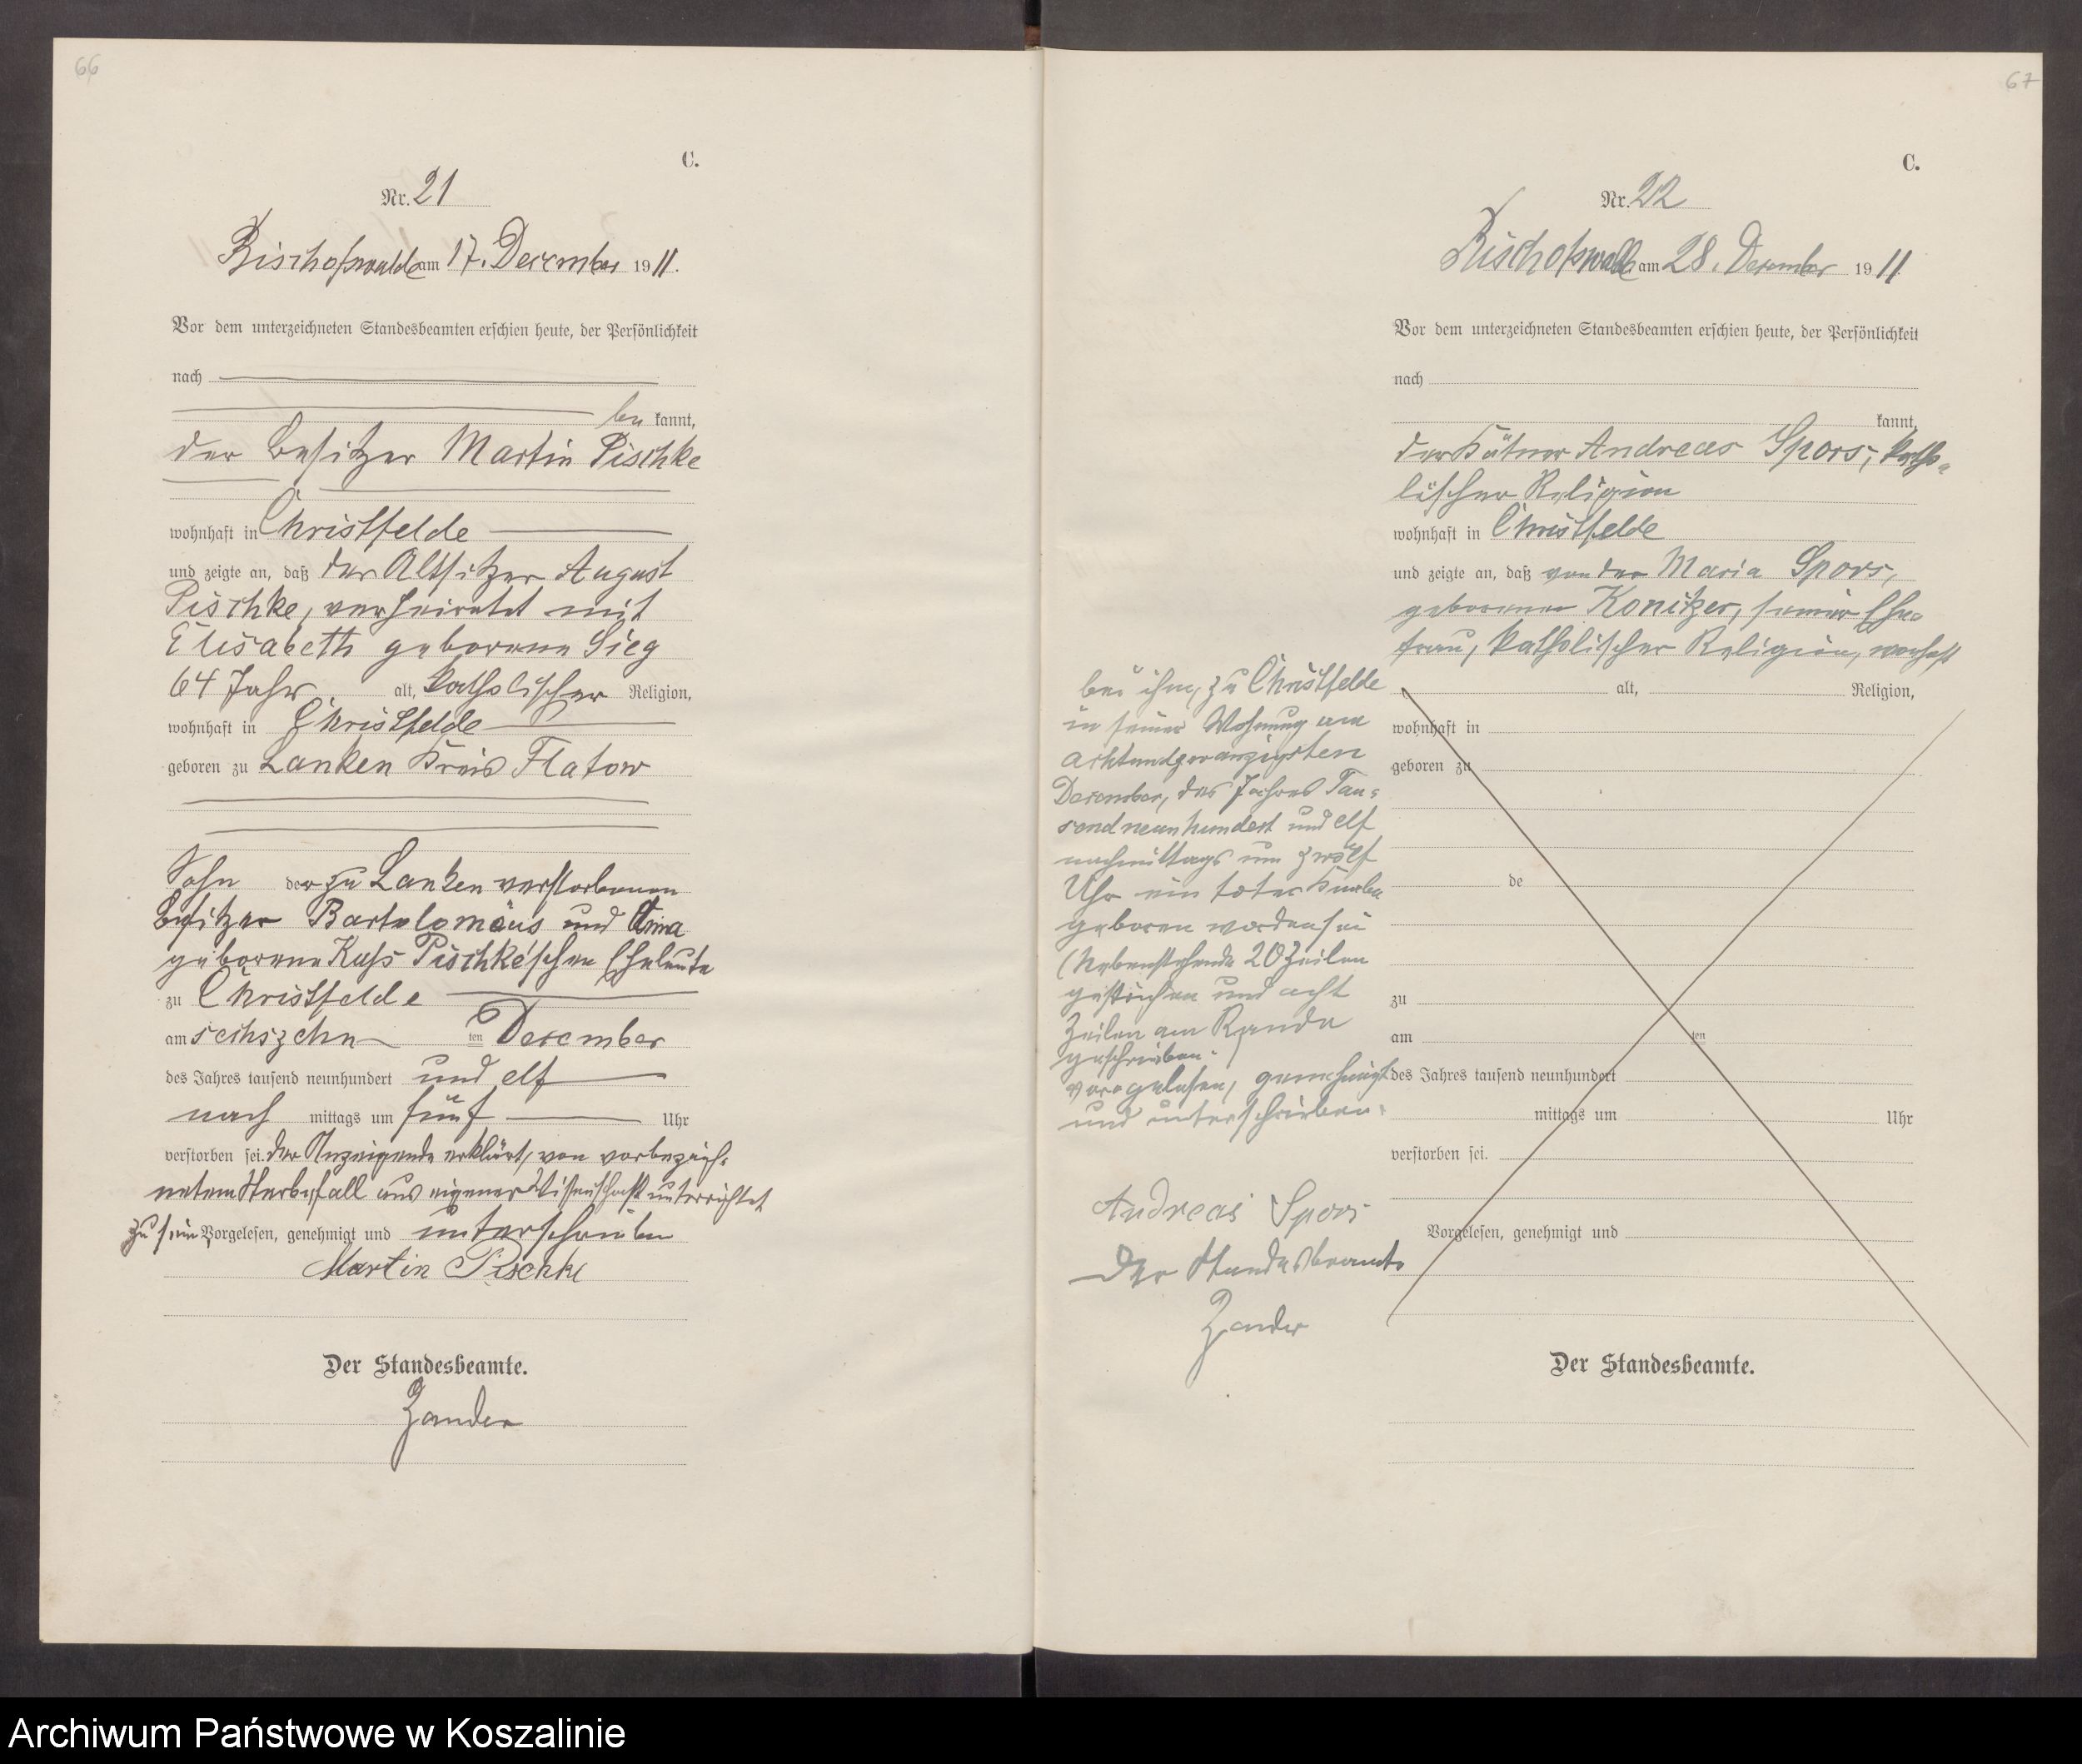 66
C.
Nr. 21
Bischofswalde am 17. December 1911.
Vor dem unterzeichneten Standesbeamten erschien heute, der Persönlichkeit
nach
be kannt,
der Besitzer Martin Pischke
wohnhaft in Christfelde
und zeigte an, daß der Altsitzer August
Pischke, verheiratet mit
Elisabeth geborene Sieg
64 Jahr, alt, katholischer Religion,
wohnhaft in Christfelde
geboren zu Lanken Kreis Flatow
Sohn der zu Lanken verstorbenen
Besitzer Bartolomäus und Anna
geborene Kuss Pischke'schen Eheleute
zu Christfelde
am sechszehn ten December
des Jahres tausend neunhundert und elf
nach mittags um fünf Uhr
verstorben sei. Der Anzeigende erklärt, von vorbezeich-
netem Sterbefall aus eigener Wissenschaft unterrichtet
zu sein Vorgelesen, genehmigt und unterschrieben
Martin Pischke
Der Standesbeamte.
Zander
67
C.
Nr. 22
Bischofswalde am 28. Dezember 1911
Vor dem unterzeichneten Standesbeamten erschien heute, der Persönlichkeit
nach
kannt,
der Kätner Andreas Spors, katho-
lischer Religion
wohnhaft in Christfelde
und zeigte an, daß von der Maria Spors,
geborener Konitzer, seiner Ehe-
frau, katholischer Religion, wonhaft
alt, Religion,
wohnhaft in
geboren zu
de
zu
am ten
des Jahres tausend neunhundert
mittags um Uhr
verstorben sei.
Vorgelesen, genehmigt und
Der Standesbeamte.
bei ihm, zu Christfelde
in seiner Wohnung am
achtundzwanzigsten
Dezember, des Jahres Tau-
send neunhundert und elf
nachmittags um zwölf
Uhr ein toter Knabe
geboren worden sei
(Nebenstehende 20 Zeilen
gestrichen und acht
Zeilen am Rande
geschrieben.
vorgelesen, genehmigt
und unterschrieben.
Andreas Spors
Der Standesbeamte
Zander
Archiwum Państwowe w Koszalinie